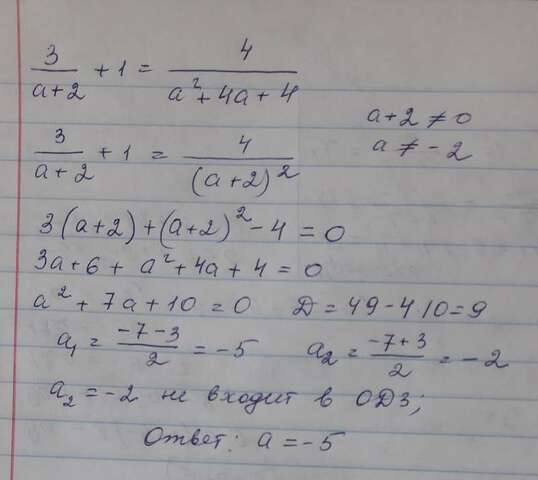 3/(a+2) + 1 = 4/(a²+4a+4)    a+2≠0
3/(a+2) + 1 = 4/(a+2)²    a≠-2
3(a+2)+(a+2)²-4=0
3a+6+a²+4a+4=0
a²+7a+10=0    D=49-4·10=9
a₁=(-7-3)/2=-5    a₂=(-7+3)/2=-2
a₂=-2 не входит в ОДЗ;
Ответ: a=-5